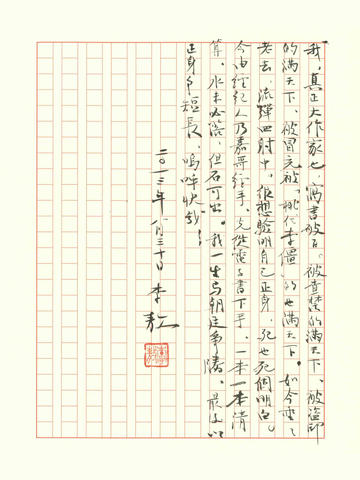 我，真正大作家也，寫書被百，被查禁的滿天下，被盜印
的滿天下，被冒充被「桃代李僵」的也滿天下。如今垂垂
老去，流彈四射中，很想驗明自己正身，死也死個明白。
今由經紀人乃嘉哥經手，先從電子書下手，一本一本清
算，水未必落，但石可出。我一生與朝廷爭勝，最後以
正身爭短長，嗚呼快哉！
二〇一三年八月三十日 李敖